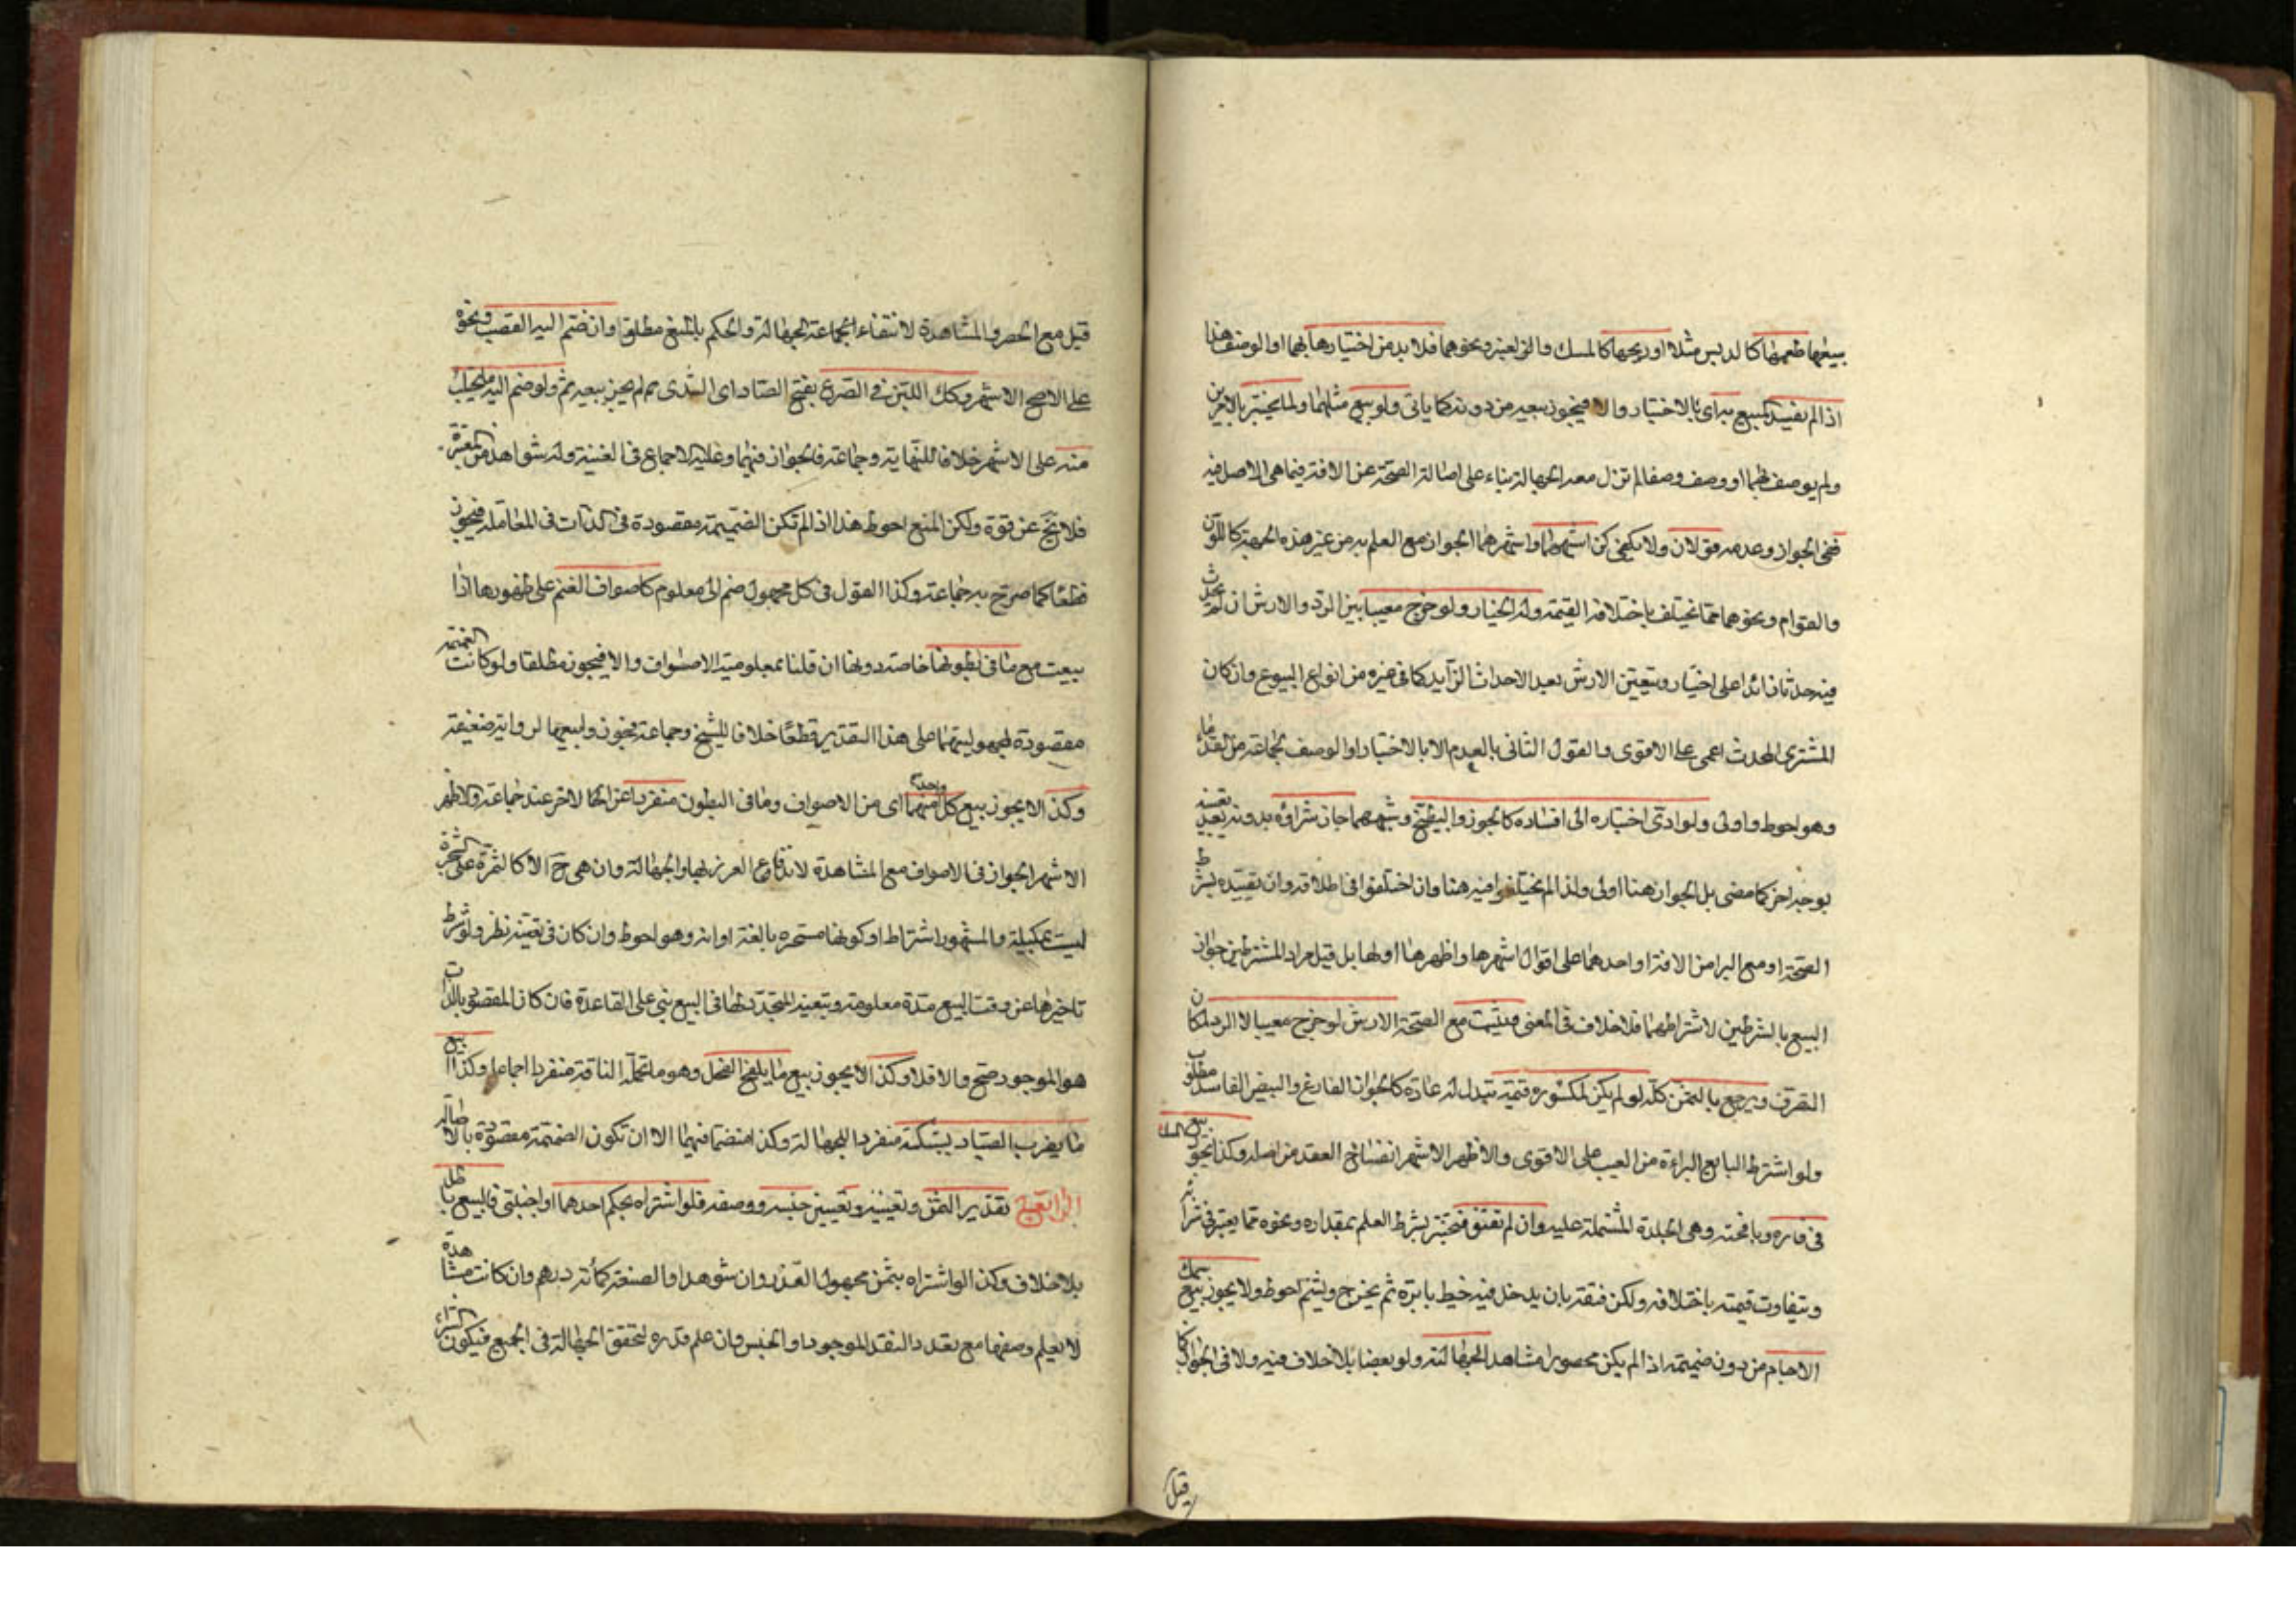 بيعها طعمها كالدبس مثلا او ريحها كالمسك والزعفر ونحوهما فلا بد من اختبارها بهما او الوصف هذا
اذا لم يفسد المبيع به اى بالاختبار والا فيجوز بيعه من دونه كما ياتى ولو بيع مثلهما ولما يختبر بالاخرين
ولم يوصف بهما او وصف وصفا لم تزل معه الجهالة بناء على اصالة الصحة عن الافة فيما هى الاصل فيه
ففى الجواز وعدمه قولان ولا يكفى اشبههما واشهرهما الجواز مع العلم به من غير هذه الجهة كاللون
والقوام ونحوهما مما يختلف باختلافه القيمة وله الخيار ولو خرج معيبا بين الرد والارش ان لم يحدث
فيه حدثا زائدا على اختباره ويتعين الارش بعد الاحداث الزايد كما فى غيره من انواع البيوع وان كان
المشترى المحدث اعمى على الاقوى والقول الثانى بالعدم الا بالاختبار او الوصف لجماعة من القدماء
وهو احوط واولى ولو ادى اختباره الى افساده كالجوز والبطيخ وشبههما جاز شراؤه بدونه تعبد
بوجه اخر كما مضى بل الجواز هنا اولى ولذا لم يختلفوا فيه هنا وان اختلفوا فى اطلاقه وان تقييده بشرط
الصحة او مع البرا من الافة او احدهما على اقوال اشهرها واظهرها اولها بل قيل مراد المشترطين جواز
البيع بالشرطين لا شرائطهما فلا خلاف فى المعنى ويثبت مع الصحة الارش لو خرج معيبا لا الرد لمكان
التصرف ويرجع بالثمن كله لو لم يكن لمكسوره قيمة تبدل له عادة كالجواز الفارغ والبيض الفاسد
ولو اشترط البايع البراءة من العيب على الاقوى والاظهر الاشهر انفساخ العقد من اصله وكذا يجوز بيع المسك
فى فاره وبافحته وهى الجلدة المشتملة عليه وان لم تفتق فتختبر بشرط العلم بمقداره ونحوه مما يعتبر فى
ويتفاوت قيمته باختلافه ولكن فتقه بان يدخل فيه خيط بابرة ثم يخرج ويشم احوط ولا يجوز بيع سمك
الاجام من دون ضميمة اذا لم يكن محصورا مشاهدا لجهالته ولو بعضا بلا خلاف فيه ولا فى الجواز
قيل
قيل مع الحصر والمشاهدة لانتفاء الجهالة والحكم بالمنع مطلقا وان ضم اليه القصب ونحوه
على الاصح الاشهر وكك اللبن فى الضرع بفتح الضاد اى الثدى لم يجز بيعه ثم ولو ضم اليه ما يحتلب
منه على الاشهر خلافا للنهاية وجماعة فالجواز فيهما وعليه الاجماع فى الغنية وله شواهد من المعتبرة
فلا يخ عن قوة ولكن المنع احوط هذا اذا لم تكن الضميمة مقصودة فى الذات فى المعاملة فيجوز
قطعا كما صرح به جماعة وكذا القول فى كل مجهول ضم الى معلوم كاصواف الغنم على ظهورها اذا
بيعت مع ما فى بطونها خاصة دونها ان قلنا بمعلومية الاصواف والا فيجوز مطلقا ولو كانت الضميمة
مقصودة لمجهوليتهما على هذا التقدير قطعا خلافا للشيخ وجماعة فيجوز ولبيعهما لرواية ضعيفة
وكذا لا يجوز بيع كل واحدة منهما اى من الاصواف وما فى البطون منفردا عن الاخر عند جماعة والاظهر
الاشهر الجواز فى الاصواف مع المشاهدة لاندفاع الغرر بها والجهالة وان هى ح الا كالثمرة على الشجرة
ليست بمكيلة والمشهور اشتراط او كونها مستجزه بالغة اوانه وهو احوط وان كان فى تعينه نظر ولو شرط
تاخيرها عن وقت البيع مدة معلومة وبتعبد المتجدد لها فى البيع بنى على القاعدة فان كان المقصود بالذات
هو الموجود صح والا فلا وكذا لا يجوز بيع ما يلقح الفحل وهو ما تحمله الناقة منفردا اجماعا وكذا بيع
ما يضرب الصياد بشبكته منفردا للجهالة وكذا منضما فيهما الا ان تكون الضميمة مقصودة بالاصالة
الرابع تقدير الثمن وتعيينه وتعيين جنسه ووصفه فلو اشتراه بحكم احدهما او اجنبى فالبيع باطل
بلا خلاف وكذا لو اشتراه بثمن مجهول القدر وان شوهد او الصفة كمأة درهم وان كانت مشاهدة
لا يعلم وصفها مع تعدد النقد الموجود او الجنس وان علم قدره لتحقق الجهالة فى الجميع فيكون الشراء